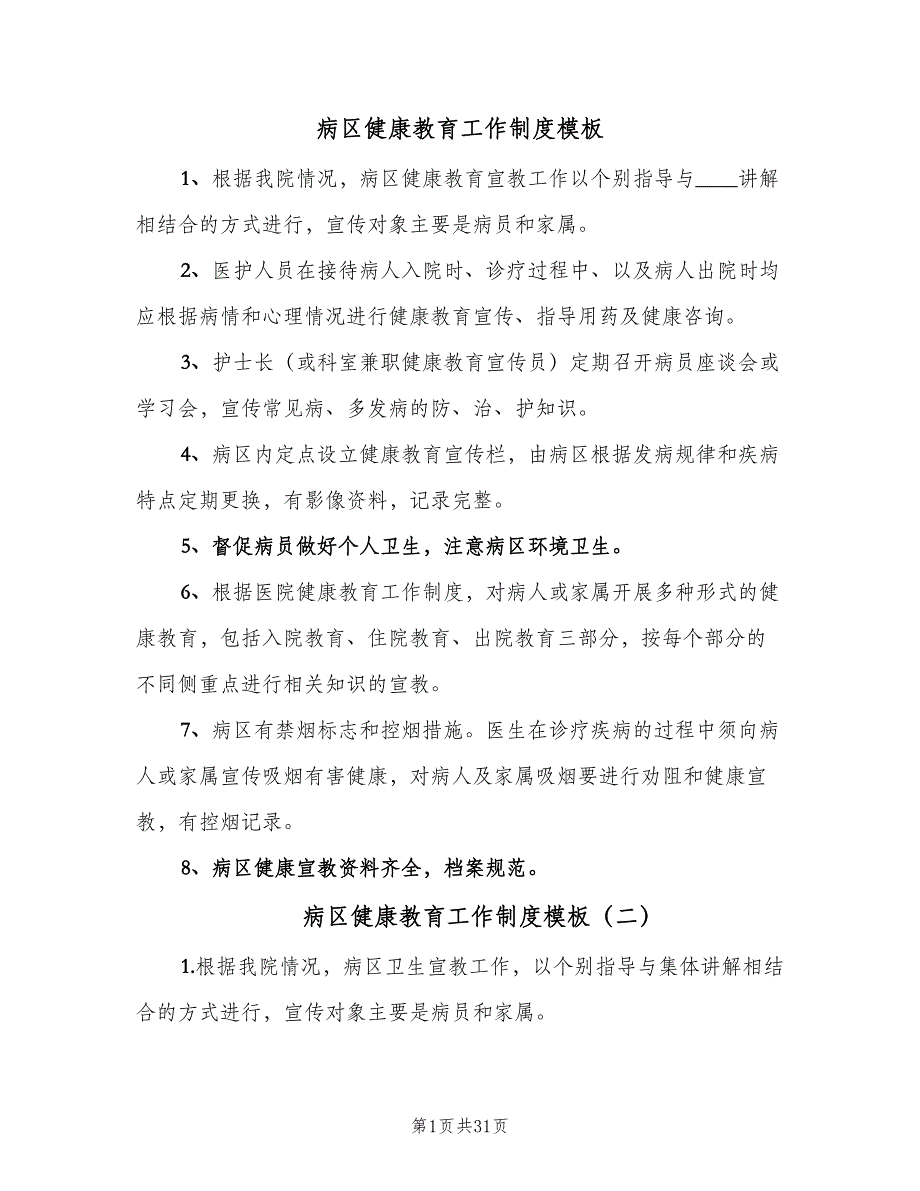 病区健康教育工作制度模板
1、根据我院情况，病区健康教育宣教工作以个别指导与____讲解
相结合的方式进行，宣传对象主要是病员和家属。
2、医护人员在接待病人入院时、诊疗过程中、以及病人出院时均
应根据病情和心理情况进行健康教育宣传、指导用药及健康咨询。
3、护士长（或科室兼职健康教育宣传员）定期召开病员座谈会或
学习会，宣传常见病、多发病的防、治、护知识。
4、病区内定点设立健康教育宣传栏，由病区根据发病规律和疾病
特点定期更换，有影像资料，记录完整。
5、督促病员做好个人卫生，注意病区环境卫生。
6、根据医院健康教育工作制度，对病人或家属开展多种形式的健
康教育，包括入院教育、住院教育、出院教育三部分，按每个部分的
不同侧重点进行相关知识的宣教。
7、病区有禁烟标志和控烟措施。医生在诊疗疾病的过程中须向病
人或家属宣传吸烟有害健康，对病人及家属吸烟要进行劝阻和健康宣
教，有控烟记录。
8、病区健康宣教资料齐全，档案规范。
病区健康教育工作制度模板（二）
1.根据我院情况，病区卫生宣教工作，以个别指导与集体讲解相结
合的方式进行，宣传对象主要是病员和家属。
第1页共31页